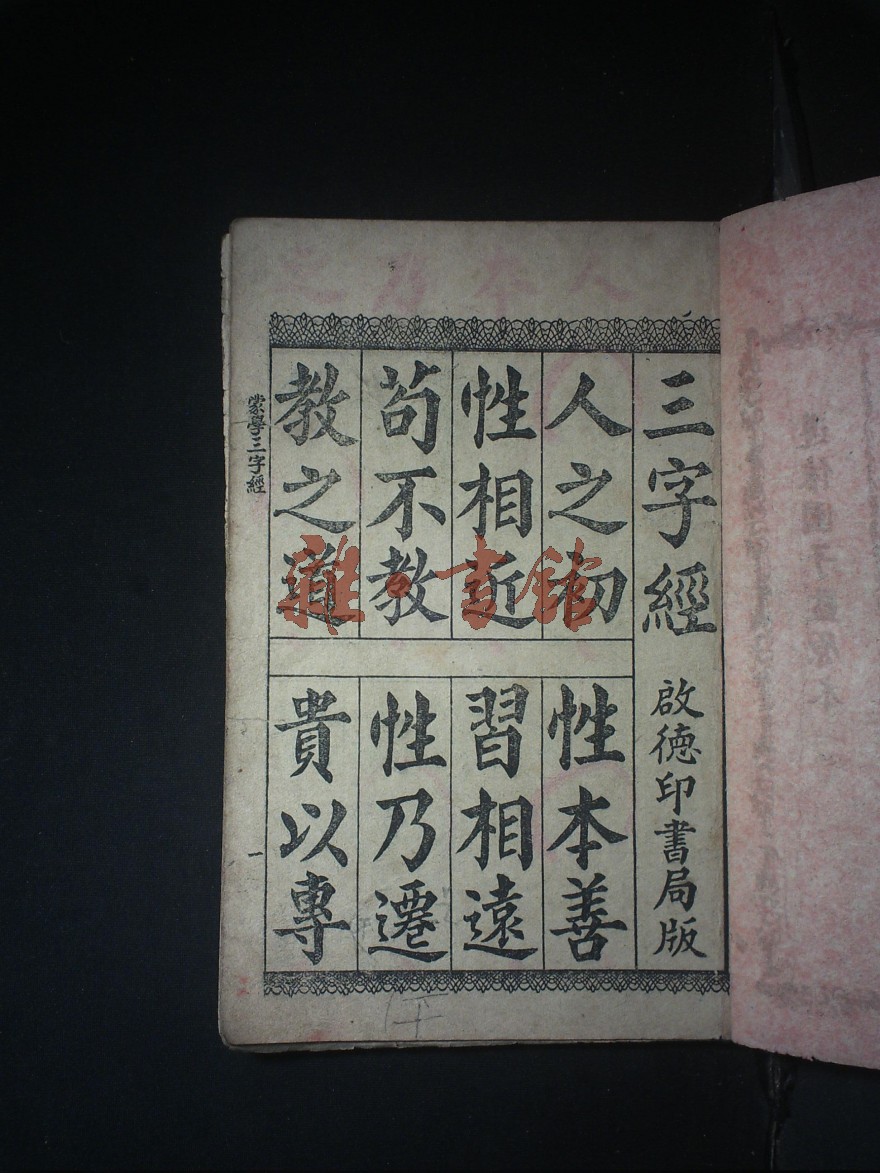 三字經 啟德印書局版
人之初 性本善
性相近 習相遠
苟不教 性乃遷
教之道 貴以專
蒙學三字經 一
雜·書館